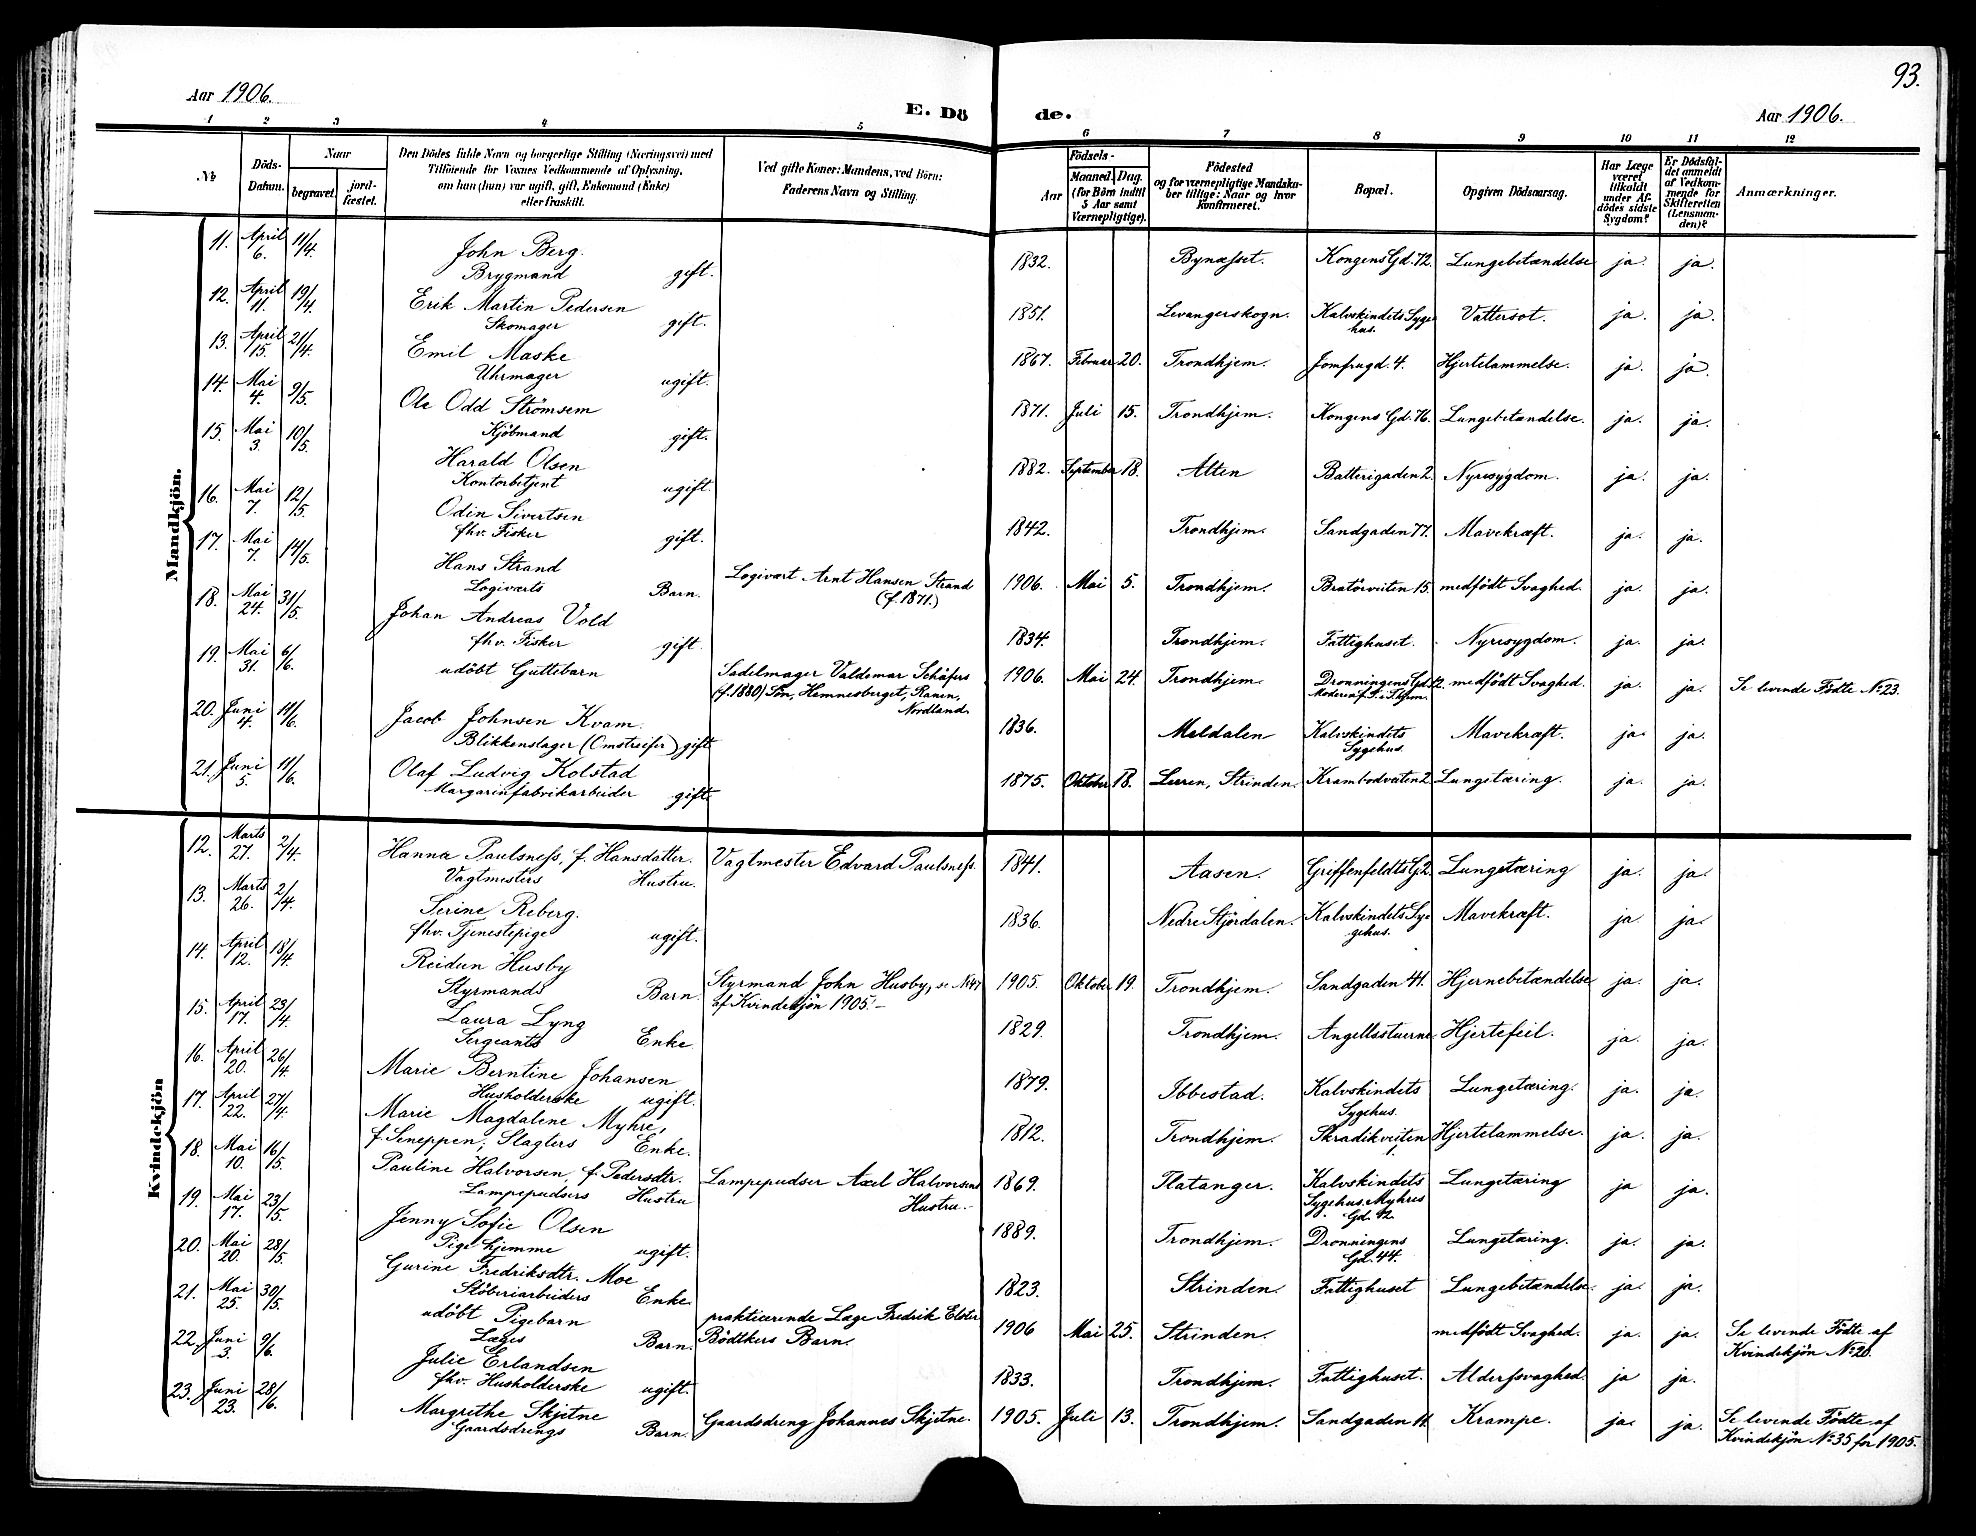 93.
Aar 1906.
E. Dö de.
Aar 1906.
1 2 3 4 5 6 7 8 9 10 11 12
№
Döds-Datum.
Naar
begravet.
jord-fæstet.
Den Dödes fulde Navn og borgerlige Stilling (Næringsvei) med
Tilföiende for Voxnes Vedkommende af Oplysning,
om han (hun) var ugift, gift, Enkemand (Enke)
eller fraskilt.
Ved gifte Koner: Mandens, ved Börn:
Faderens Navn og Stilling.
Födsels-
Aar
Maaned. Dag.
(for Börn indtil
5 Aar samt
Værnepligtige).
Födested
og for værnepligtige Mandska-
ber tillige: Naar og hvor
konfirmeret.
Bopæl.
Opgiven Dödsaarsag.
Har Læge
været
tilkaldt
under Af-
dödes sidste
Sygdom?
Er Dödsfal-
det anmeldt
af Vedkom-
mende for
Skifteretten
(Lensman-
den)?
Anmærkninger.
Mandkjön.
11. April 6. 11/4. John Berg. 1832. Bynæsset. Kongens Gd. 72. Lungebetændelse ja. ja.
Brygmand gift.
12. April 11. 19/4. Erik Martin Pedersen 1851. Levangerskogn. Kalvskindets Syge Vattersot. ja. ja.
Skomager gift. hus.
13. April 15. 21/4. Emil Maske 1867. Februar 20. Trondhjem. Jomfrugd. 4. Hjertelammelse. ja. ja.
Uhrmager ugift.
14. Mai 4. 9/5. Ole Odd Strömsem 1871. Juli 15. Trondhjem. Kongens Gd. 76. Lungebetændelse. ja. ja.
Kjöbmand gift.
15. Mai 3. 10/5. Harald Olsen 1882. September 18. Alten Batterigaden 2. Nyresygdom. ja. ja.
Kontorbetjent ugift.
16. Mai 7. 12/5. Odin Sivertsen 1842. Trondhjem. Sandgaden 77. Mavekræft. ja. ja.
fhv. Fisker gift.
17. Mai 7. 14/5. Hans Strand Logivært Arnt Hansen Strand 1906. Mai 5. Trondhjem. Bratörveiten 15. medfödt Svaghed. ja. ja.
Logiværts Barn. (f. 1871.)
18. Mai 24. 31/5. Johan Andreas Vold 1834. Trondhjem. Fattighuset. Nyresygdom. ja. ja.
fhv. Fisker gift.
19. Mai 31. 6/6. udöbt Guttebarn Sadelmager Valdemar Schäfers 1906. Mai 24. Trondhjem. Dronningens Gd. 12. medfödt Svaghed. ja. ja. Se levende Födte № 23.
(f. 1880) Sön, Hemnesberget, Ranen, Nordland.
20. Juni 4. 11/6. Jacob Johnsen Kvam. 1836. Meldalen Kalvskindets Sygehus. Mavekræft. ja. ja.
Blikkenslager (Omstreifer) gift
21. Juni 5. 11/6. Olaf Ludvig Kolstad 1875. Oktober 18. Leeren, Strinden. Krambodveiten 2. Lungetæring. ja. ja.
Margarinfabrikarbeider gift.
Kvindekjön
12. Marts 27. 2/4. Hanna Paulsness, f. Hansdatter. Vagtmester Edvard Paulsness. 1841. Aasen. Griffenfeldts G. 2. Lungetæring ja. ja.
Vagtmesters Hustru.
13. Marts 26. 2/4. Serine Reberg. 1836. Nedre Stjördalen. Kalvskindets Sy- Mavekræft. ja. ja.
fhv. Tjenestepige ugift. gehus.
14. April 12. 18/4. Reidun Husby Styrmand John Husby, se № 47 1905. Oktober 19. Trondhjem. Sandgaden 41. Hjernebetændelse ja. ja.
Styrmands Barn. af Kvindekjön 1905.
15. April 17. 23/4. Laura Lyng 1829. Trondhjem. Angellsstuerne Hjertefeil. ja. ja.
Sergeants Enke.
16. April 20. 26/4. Marie Berntine Johansen 1879. Ibbestad. Kalvskindets Sygehus. Lungetæring. ja. ja.
Husholderske ugift.
17. April 22. 27/4. Marie Magdalene Myhre, 1812. Trondhjem. Skradikveiten 1. Hjertelammelse. ja. ja.
f. Seneppen; Slagters Enke.
18. Mai 10. 16/5. Pauline Halvorsen, f. Pedersdtr. Lampepudser Axel Halvorsens 1869. Flatanger. Kalvskindets Lungetæring ja ja.
Lampepudsers Hustru Hustru. Sygehus. Myhres Gd. 12.
19. Mai 17. 23/5. Jenny Sofie Olsen 1889. Trondhjem. Dronningens Gd. 44. Lungetæring. ja. ja.
Pige hjemme ugift.
20. Mai 20. 28/5. Gurine Fredriksdtr. Moe 1823. Strinden. Fattighuset Lungebetændelse. ja. ja.
Stöberiarbeiders Enke.
21. Mai 25. 30/5. udöbt Pigebarn prakticerende Læge Fredrik Elster 1906 Mai 25. Strinden. medfödt Svaghed. ja. ja. Se levende Födte af
Læges Barn. Bödtkers Barn. Kvindekjön № 20.
22. Juni 3. 9/6. Julie Erlandsen 1833. Trondhjem. Fattighuset. Alderssvaghed. ja ja.
fhv. Husholderske ugift.
23. Juni 23. 28/6. Margrethe Skjetne Gaardsdreng Johannes Skjetne. 1905. Juli 13. Trondhjem. Sandgaden 11. Krampe. ja. ja. Se levende Födte af
Gaardsdrengs Barn. Kvindekjön № 35 for 1905.